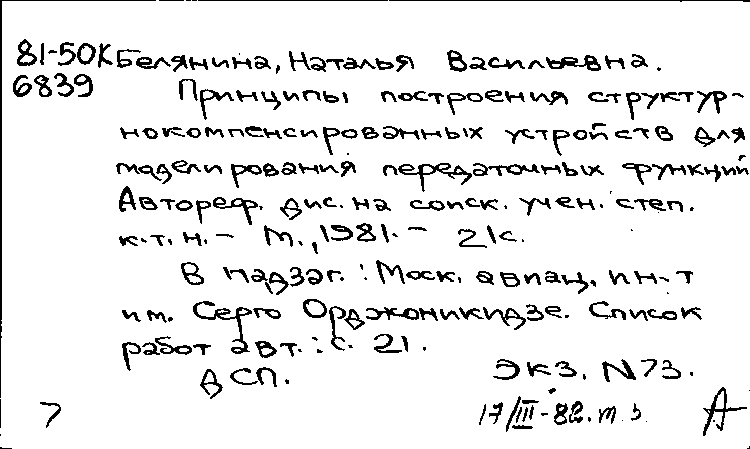 81-50К Белянина, Наталья Васильевна.
6839 Принципы построения структур-
нокомпенсированных устройств для
моделирования передаточных функций
Автореф. дис. на соиск. учен. степ.
к.т.н. - М., 1981. - 21с.
В надзаг.: Моск. авиац. ин-т
им. Серго Орджоникидзе. Список
работ авт.: с. 21.
ДСП. Экз. N73.
7 17/III-82. т з. А